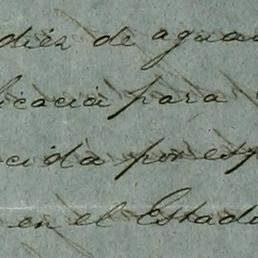 diez de agua
licacia para
cida por esp
en el Estad